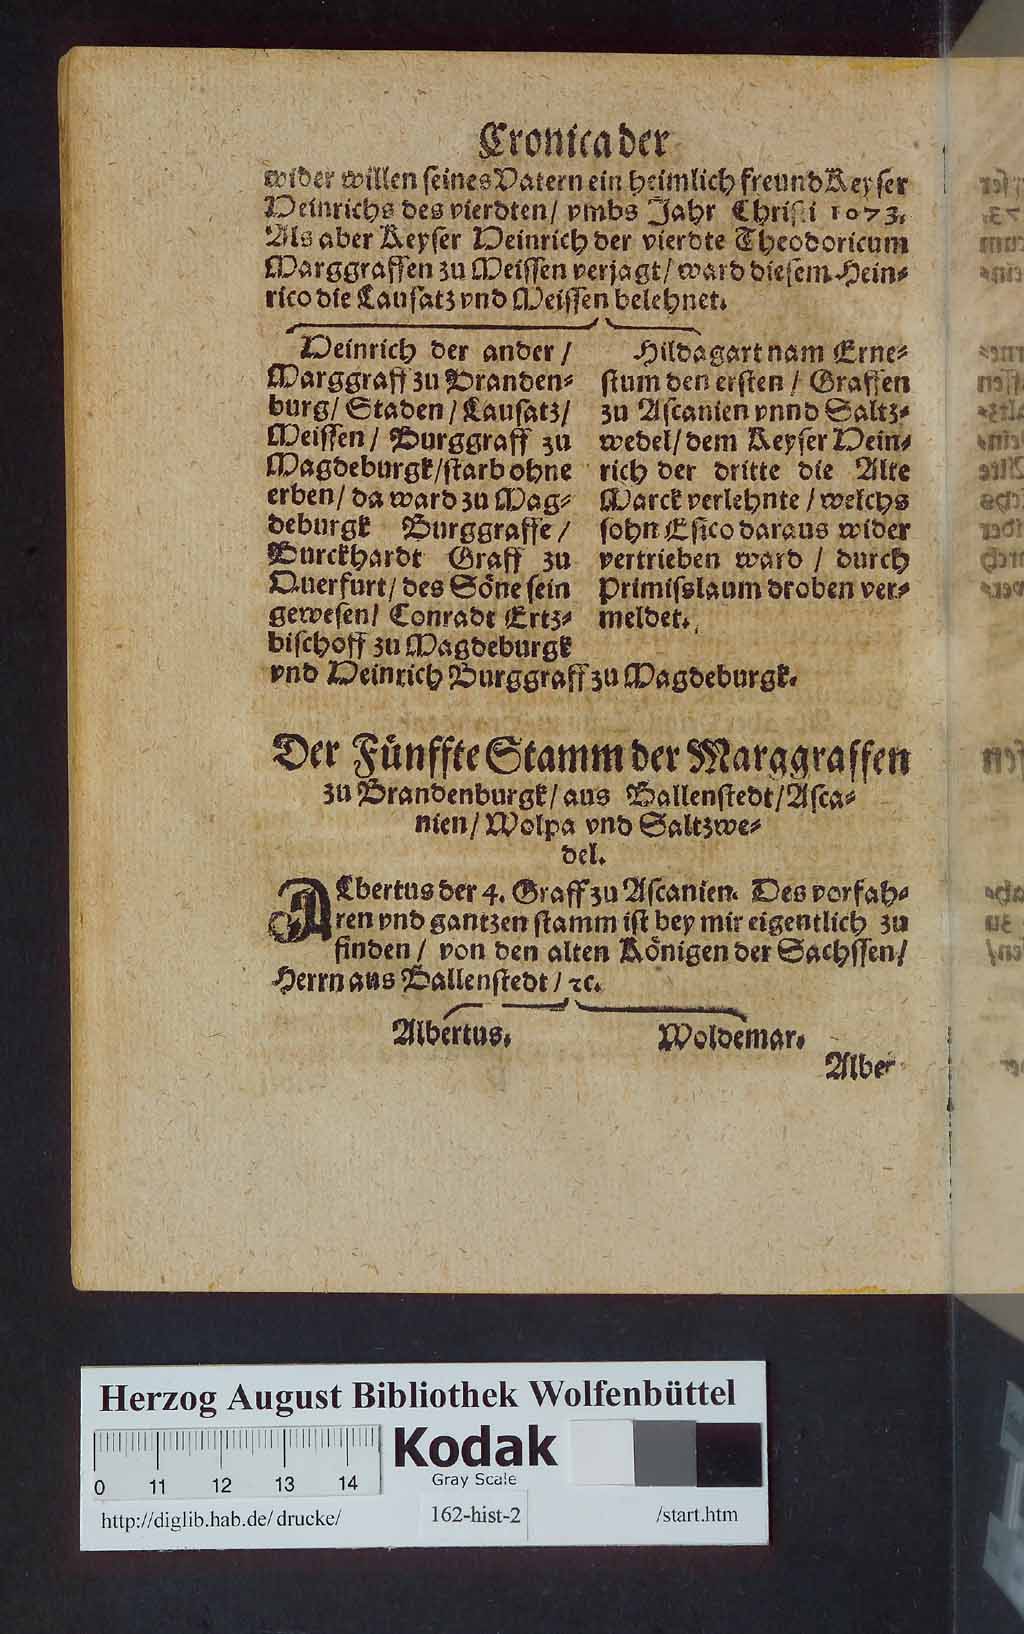 Cronica der
wider willen seines Vatern ein heimlich freund Keyser
Heinrichs des vierdten / vmbs Jahr Christi 1073.
Als aber Keyser Heinrich der vierdte Theodoricum
Marggraffen zu Meissen verjagt / ward diesem Hein⸗
rico die Lausatz vnd Meissen belehnet.
Heinrich der ander /
Marggraff zu Branden⸗
burg / Staden / Lausatz /
Meissen / Burggraff zu
Magdeburgk / starb ohne
erben / da ward zu Mag⸗
deburgk Burggraffe /
Burckhardt Graff zu
Querfurt / des Söne sein
gewesen / Conradt Ertz⸗
bischoff zu Magdeburgk
vnd Heinrich Burggraff zu Magdeburgk.
Hildagart nam Erne⸗
stum den ersten / Graffen
zu Ascanien vnnd Saltz⸗
wedel / dem Keyser Hein⸗
rich der dritte die Alte
Marck verlehnte / welchs
sohn Esico daraus wider
vertrieben ward / durch
Primisslaum droben ver⸗
meldet.
Der Fünffte Stamm der Marggraffen
zu Brandenburgk / aus Ballenstedt / Asca⸗
nien / Wolpa vnd Saltzwe⸗
del.
ALbertus der 4. Graff zu Ascanien. Des vorfah⸗
ren vnd gantzen stamm ist bey mir eigentlich zu
finden / von den alten Königen der Sachssen /
Herrn aus Ballenstedt / ꝛc.
Albertus. Woldemar.
Alber
Herzog August Bibliothek Wolfenbüttel
Kodak
Gray Scale
0 11 12 13 14
http://diglib.hab.de/drucke/ 162-hist-2 /start.htm